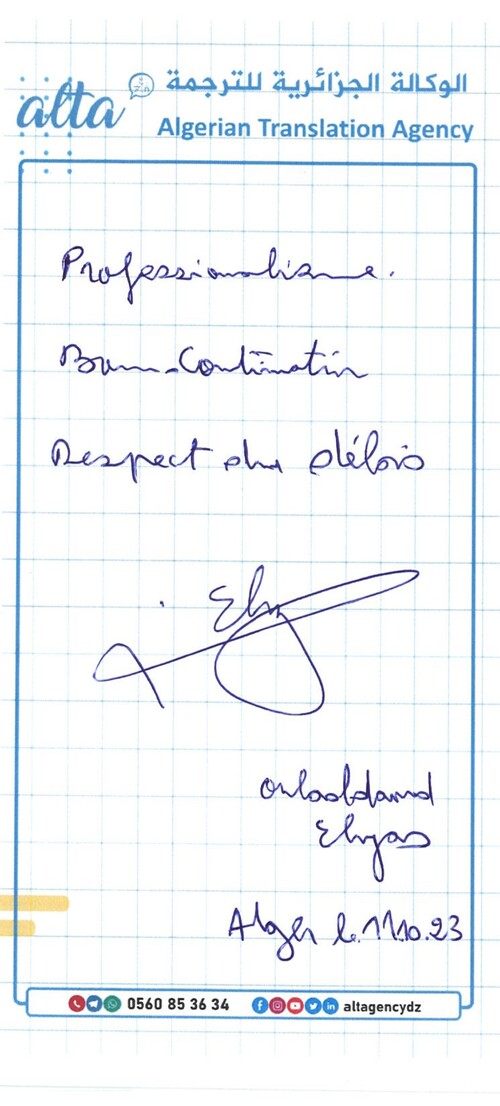 الوكالة الجزائرية للترجمة
alta
Algerian Translation Agency
Professionalisme.
Bonne Continuation
Respect des délais
Alger le 11.10.23
0560 85 36 34 altagencydz